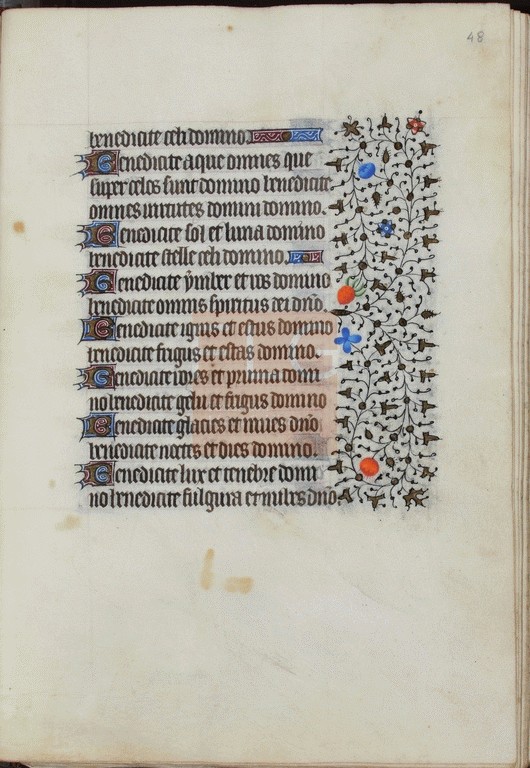 48
benedicite celi domino.
Benedicite aque omnes que
super celos sunt domino benedicite
omnes uirtutes domini domino.
Benedicite sol et luna domino
benedicite stelle celi domino.
Benedicite ymber et ros domino
benedicite omnis spiritus dei dño.
Benedicite ignis et estus domino
benedicite frigus et estas domino.
Benedicite rores et pruina domi
no benedicite gelu et frigus domino
Benedicite glacies et niues dño
benedicite noctes et dies domino.
Benedicite lux et tenebre domi
no benedicite fulgura et nubes dño